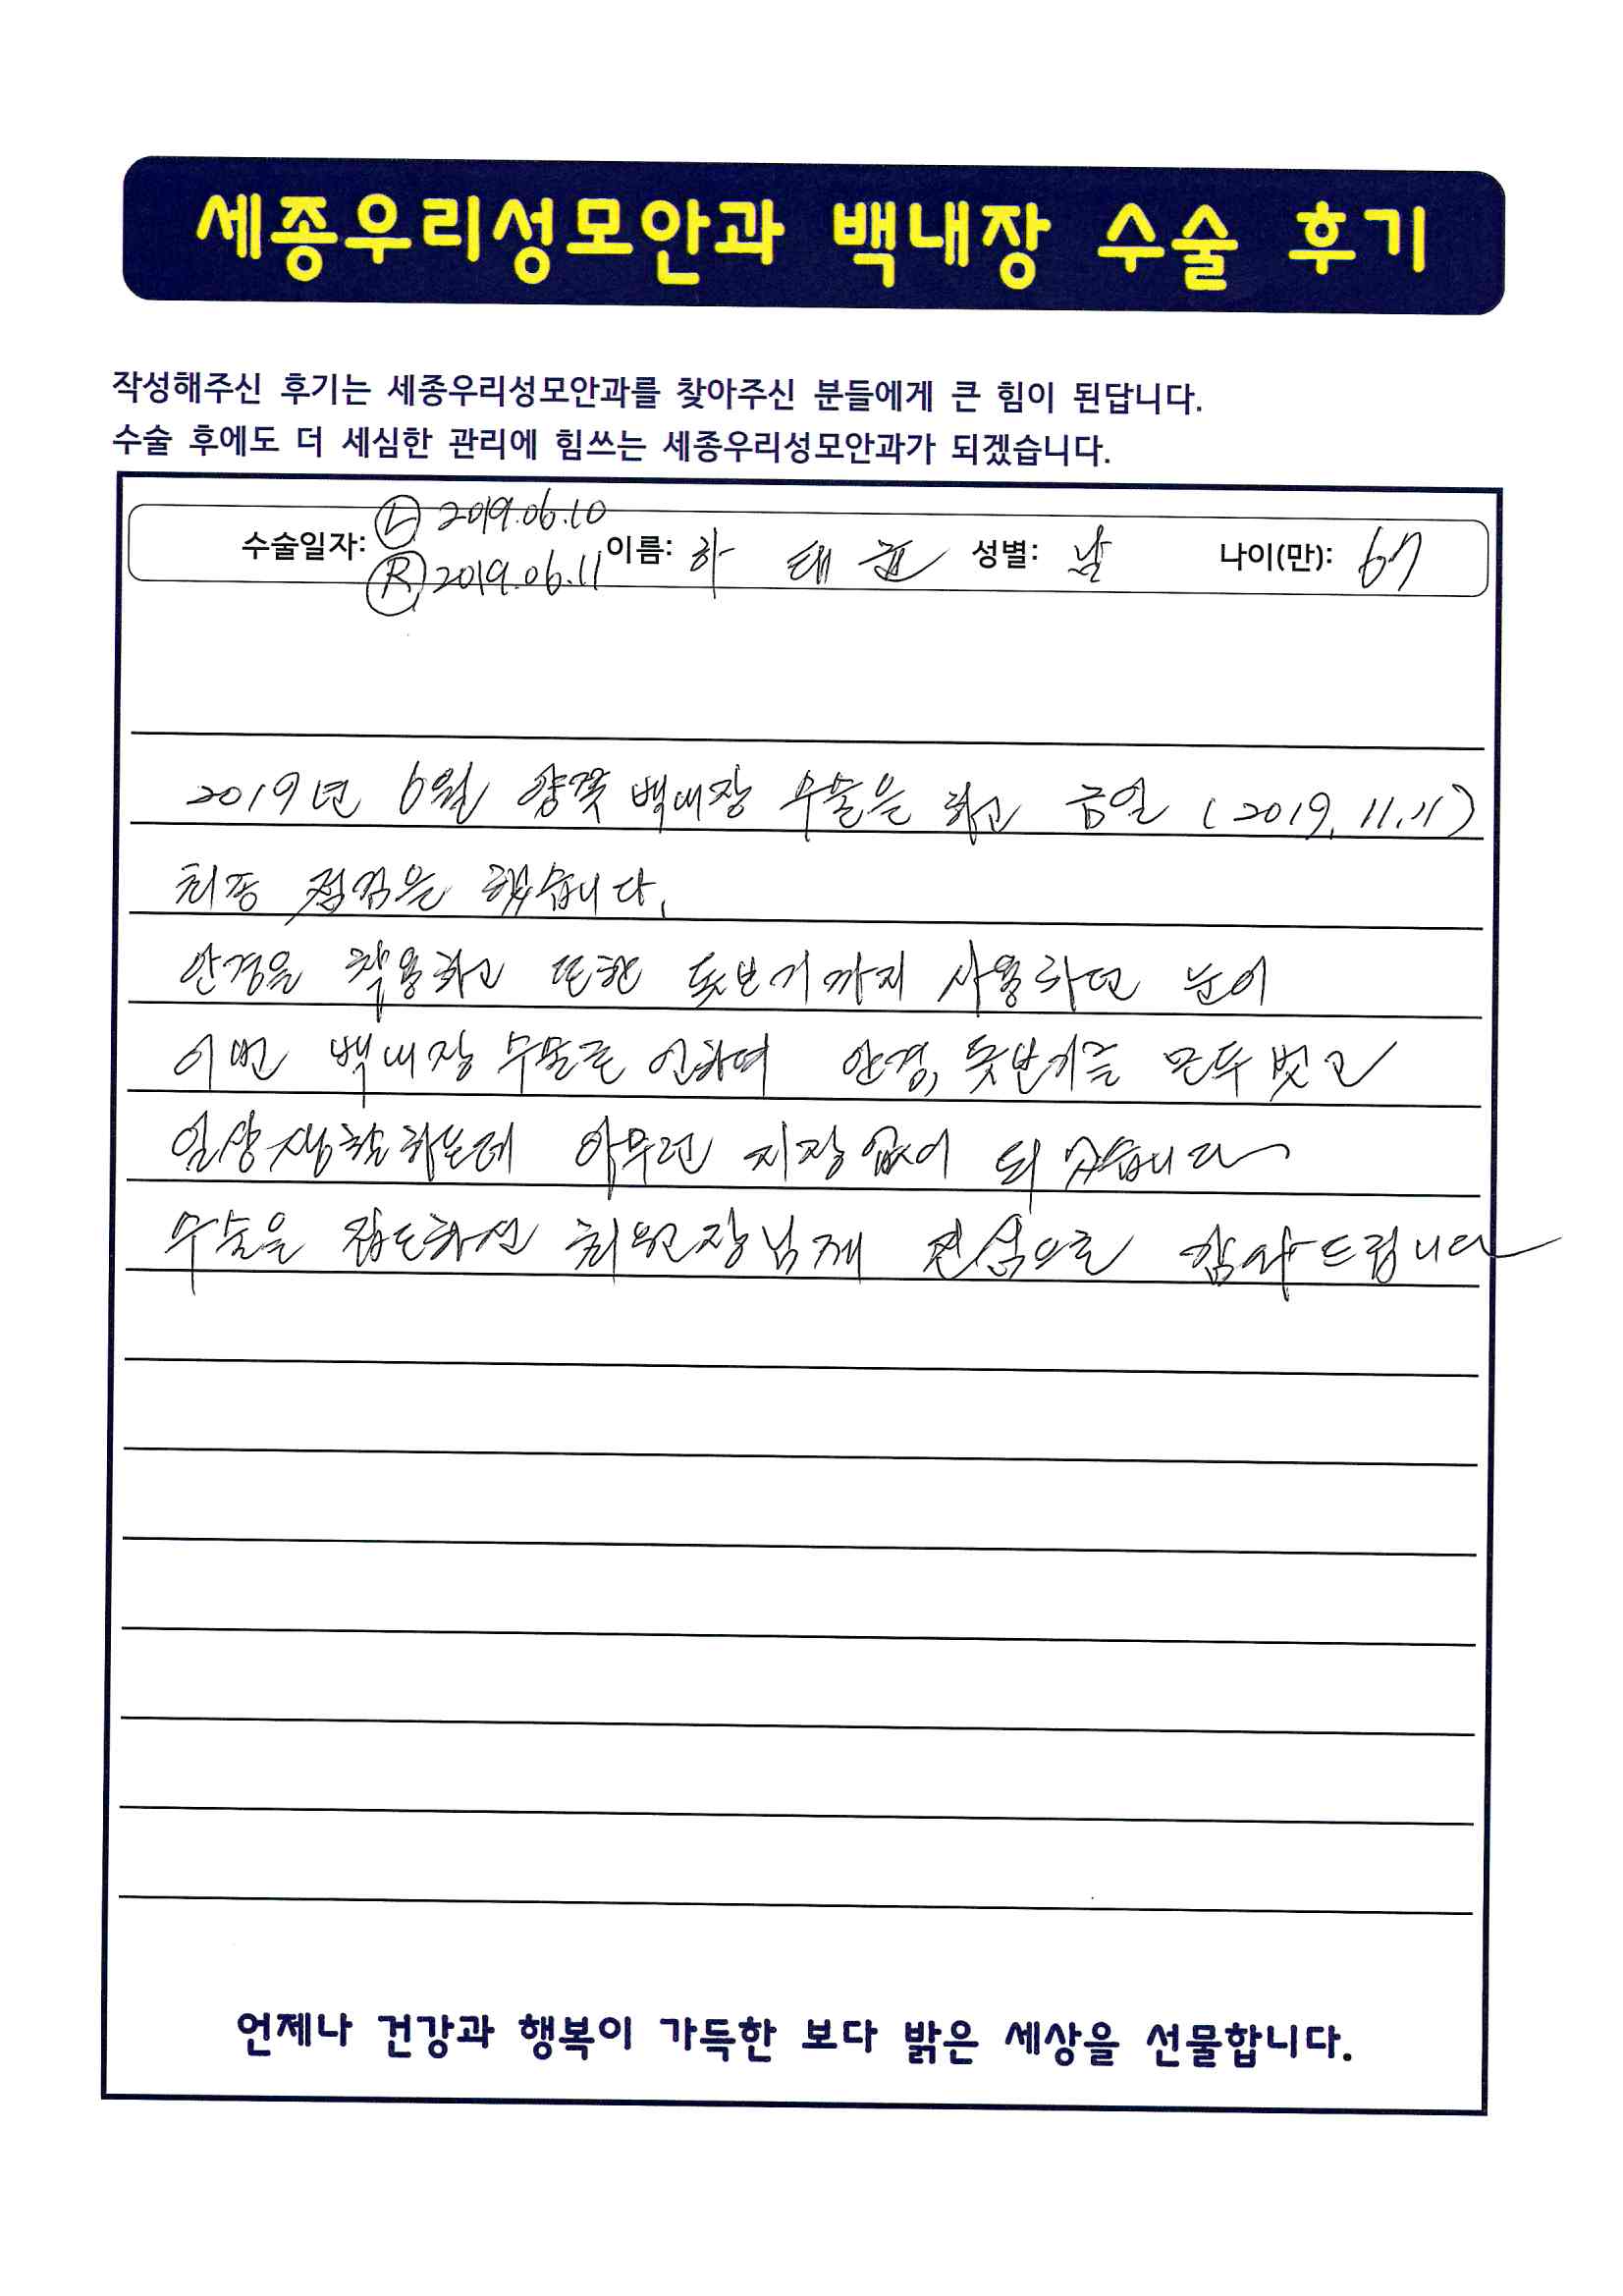 세종우리성모안과 백내장 수술 후기
작성해주신 후기는 세종우리성모안과를 찾아주신 분들에게 큰 힘이 된답니다.
수술 후에도 더 세심한 관리에 힘쓰는 세종우리성모안과가 되겠습니다.
수술일자: Ⓛ 2019.06.10 Ⓡ 2019.06.11 이름: 하 태 윤 성별: 남 나이(만): 67
2019년 6월 양쪽 백내장 수술을 하고 금일 (2019. 11. 11)
최종 점검을 했습니다.
안경을 착용하고 또한 돗보기까지 사용하던 눈이
이번 백내장 수술로 인하여 안경, 돗보기를 모두 벗고
일상생활하는데 아무런 지장없이 되었습니다
수술을 집도하신 최원장님께 진심으로 감사드립니다
언제나 건강과 행복이 가득한 보다 밝은 세상을 선물합니다.